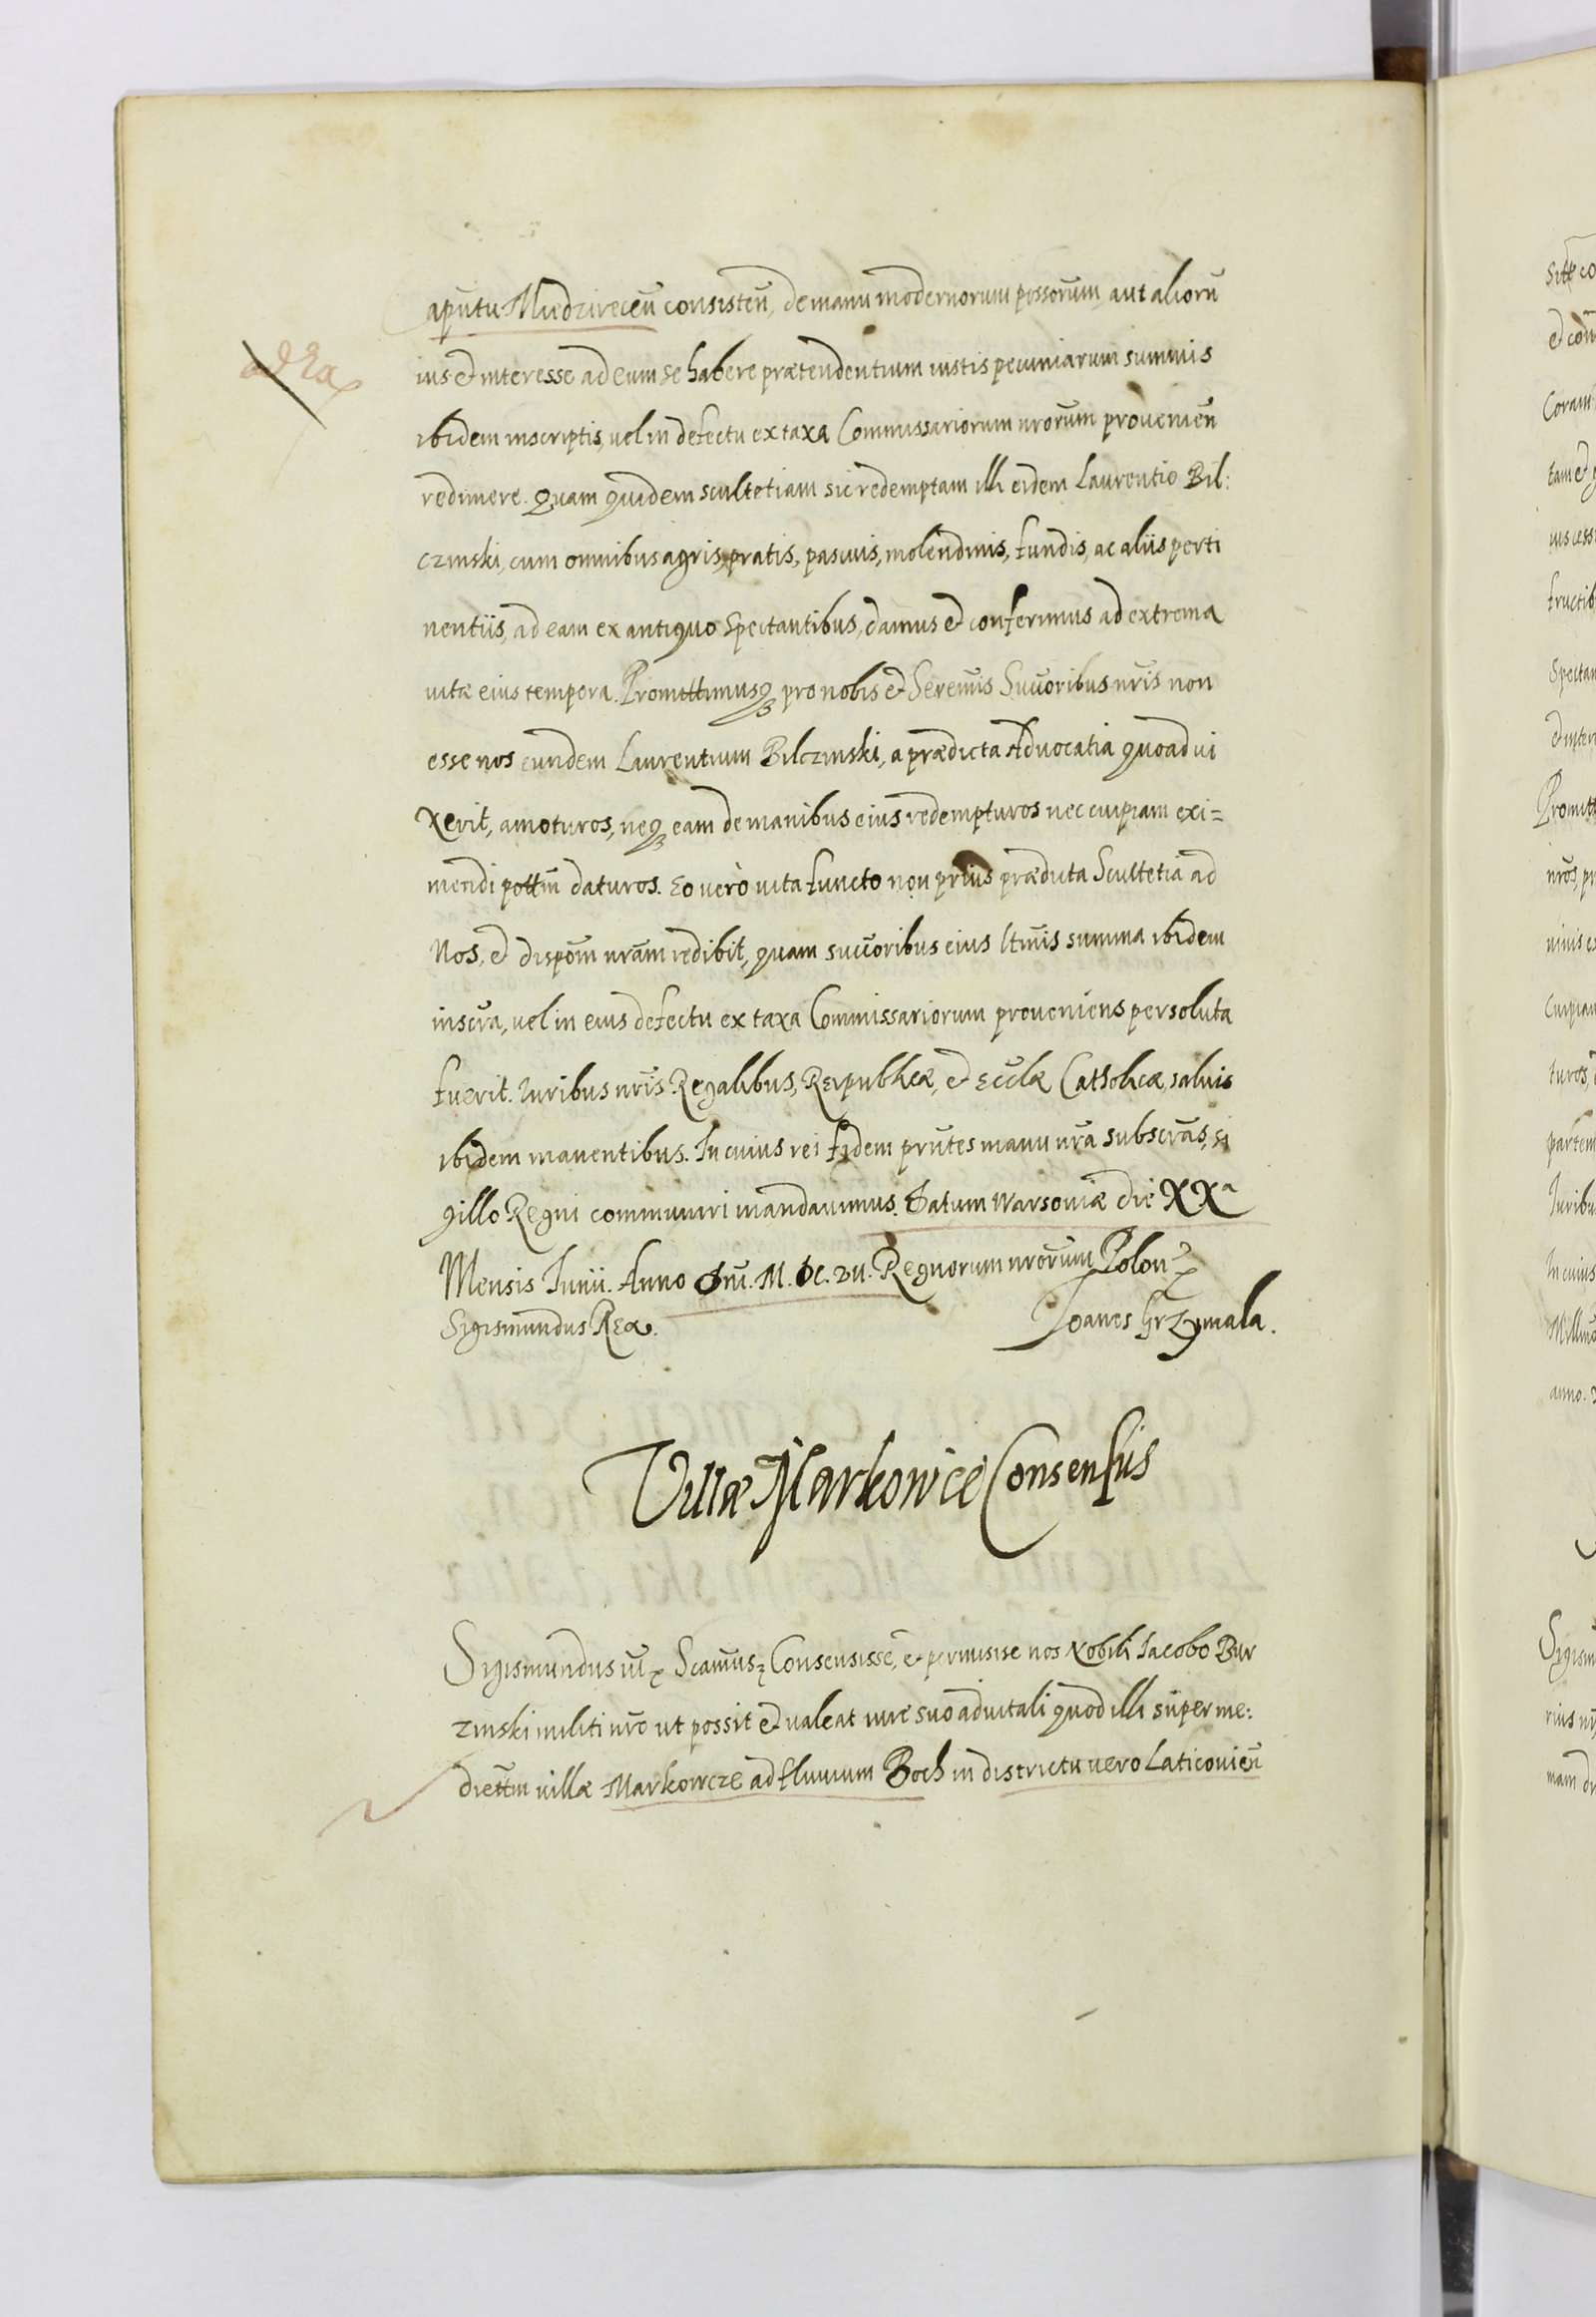 aputu Miedzireceñ consisteñ, de manu modernorum possorum aut alioru
ius et interesse ad eum se habere prætendentium iustis pecuniarum summis
ibidem inscriptis, vel in defectu ex taxa Commissariorum nrorum provenieñ
redimere. Quam quidem scultetiam sic redemptam illi eidem Laurentio Bil:
czinski, cum omnibus agris, pratis, pascuis, molendinis, fundis, ac aliis perti
nentiis, ad eam ex antiquo spectantibus, damus et conferimus ad extrema
vitæ eius tempora. Promittimusq pro nobis et Serenis Succoribus nris non
esse nos eundem Laurentium Bilczinski, a prædicta Advocatia quoad vi
xerit, amoturos, neq eam de manibus eius redempturos nec cuipiam exi=
mendi pottm daturos. Eo vero vita functo non prius prædicta Scultetia ad
Nos, et dispom nram redibit, quam succoribus eius ltimis summa ibidem
inscra, vel in eius defectu ex taxa Commissariorum proveniens persoluta
fuerit. Iuribus nris Regalibus, Reipublicæ, et Ecclæ Catholicæ, salvis
ibidem manentibus. In cuius rei fidem prntes manu nra subscras, si
gillo Regni communiri mandavimus. Datum Warsoviæ die XXa
Mensis Iunii. Anno Dni. M. DC. VII. Regnorum nrorum Polon
Sigismundus Rex.
Ioanes Grzymala.
Villæ Markowce Consensus
Sigismundus III Scamus Consensisse, et permisise nos Nobili Iacobo Bur
zinski militi nro ut possit et valeat iure suo advitali quod illi super me:
diettm villæ Markowcze ad fluvium Boch in districtu vero Laticovieñ